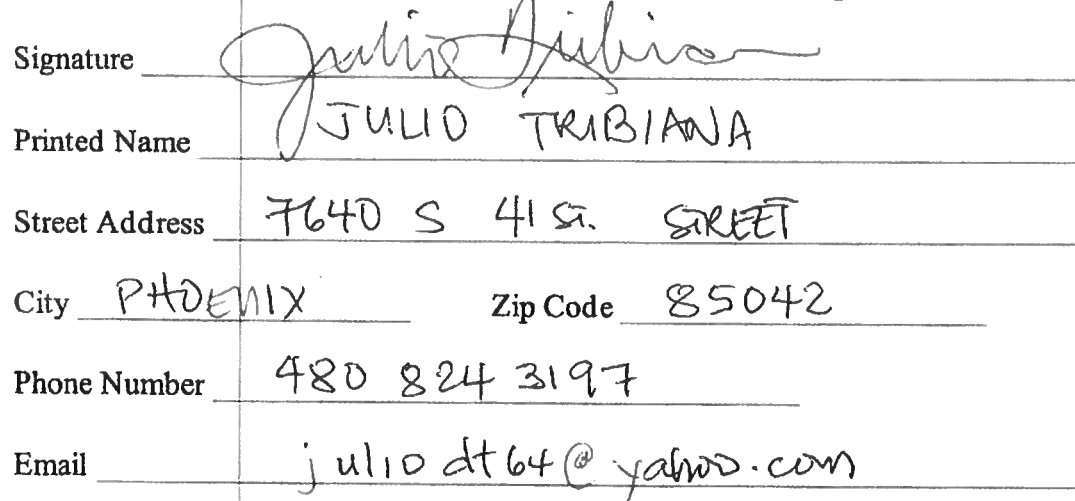 Signature Julio Tribiana
Printed Name JULIO TRIBIANA
Street Address 7640 S 41 ST. STREET
City PHOENIX Zip Code 85042
Phone Number 480 824 3197
Email juliodt64@yahoo.com